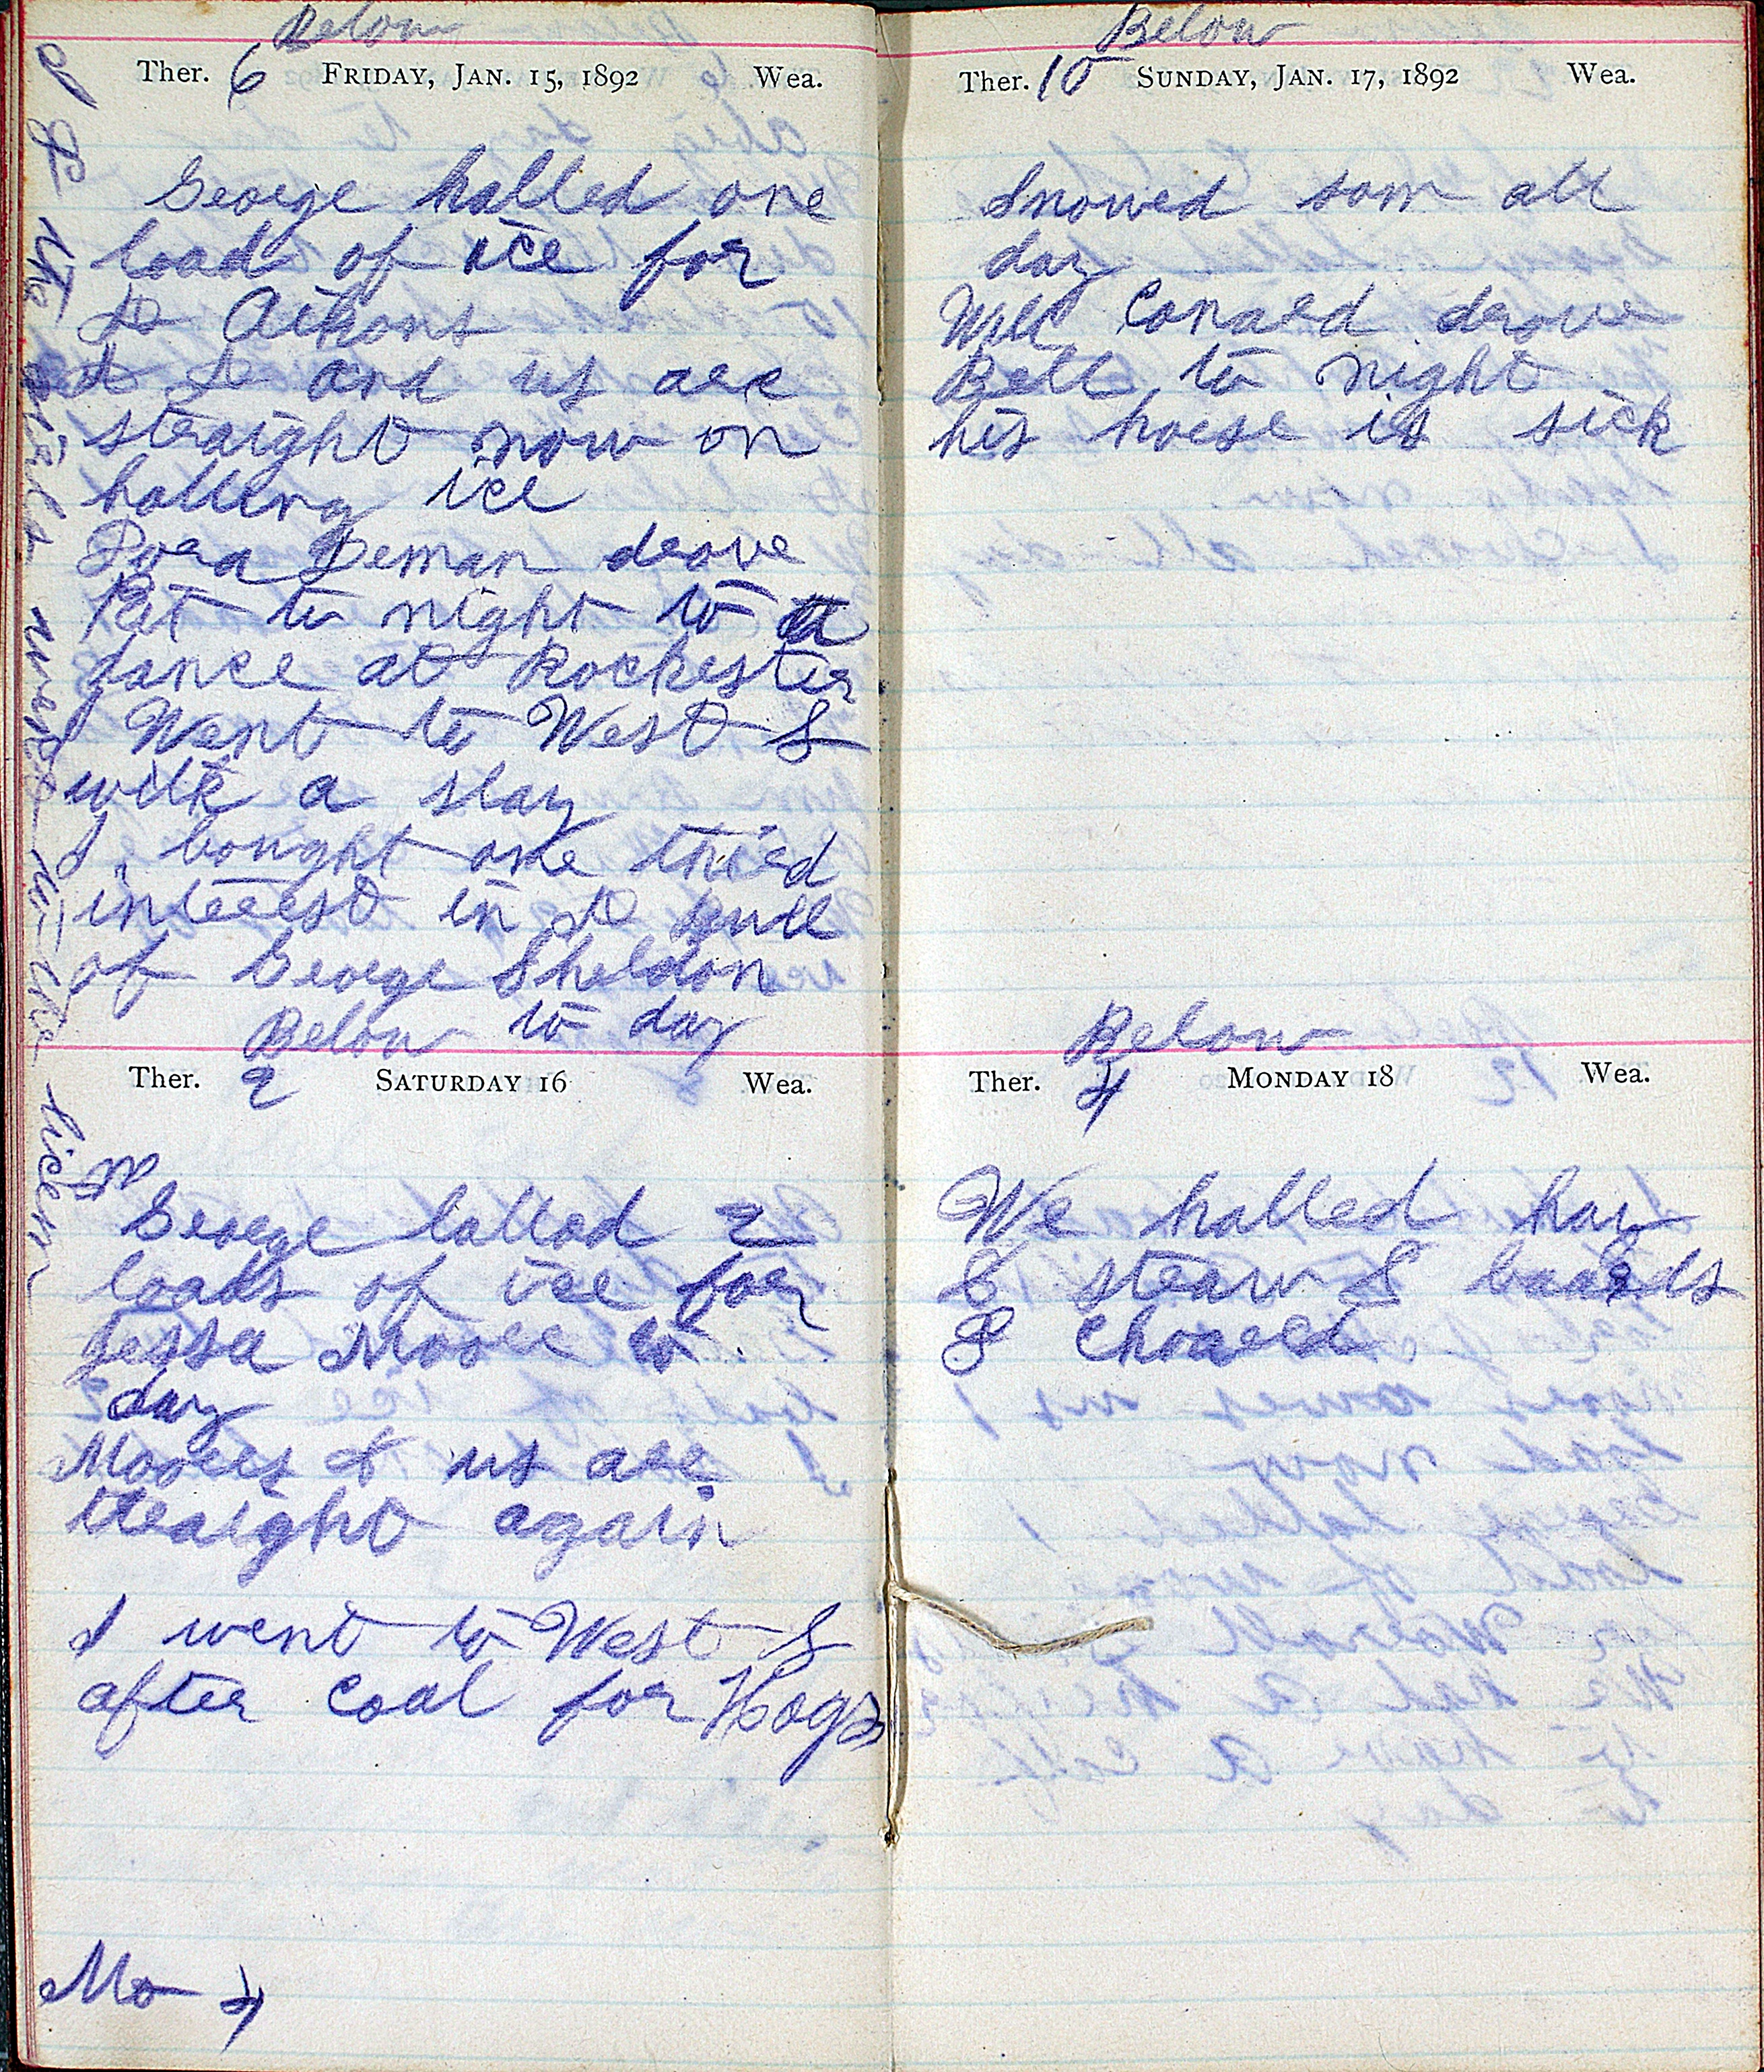 Below
Ther. 6 FRIDAY, JAN. 15, 1892 Wea.
George halled one
load of ice for
D Aikons
D and us are
straight now on
halling ice
Deman drove
Pet to night to a
dance at Rochester
Went to West S
with a slay
I bought one third
interest in D
of George Sheldon
Below to day
Ther. 2 SATURDAY 16 Wea.
George lalled 2
loads of ice for
Jessa Moore to
day
Moores & us are
traight again
I went to West S
after coal for Hogs
Mo 4
Below
Ther. 10 SUNDAY, JAN. 17, 1892 Wea.
Snowed som all
day
Will Conard drove
Bell to night
his horse is sick
Below
Ther. 4 MONDAY 18 Wea.
We halled hay
& straw & baards
& chored